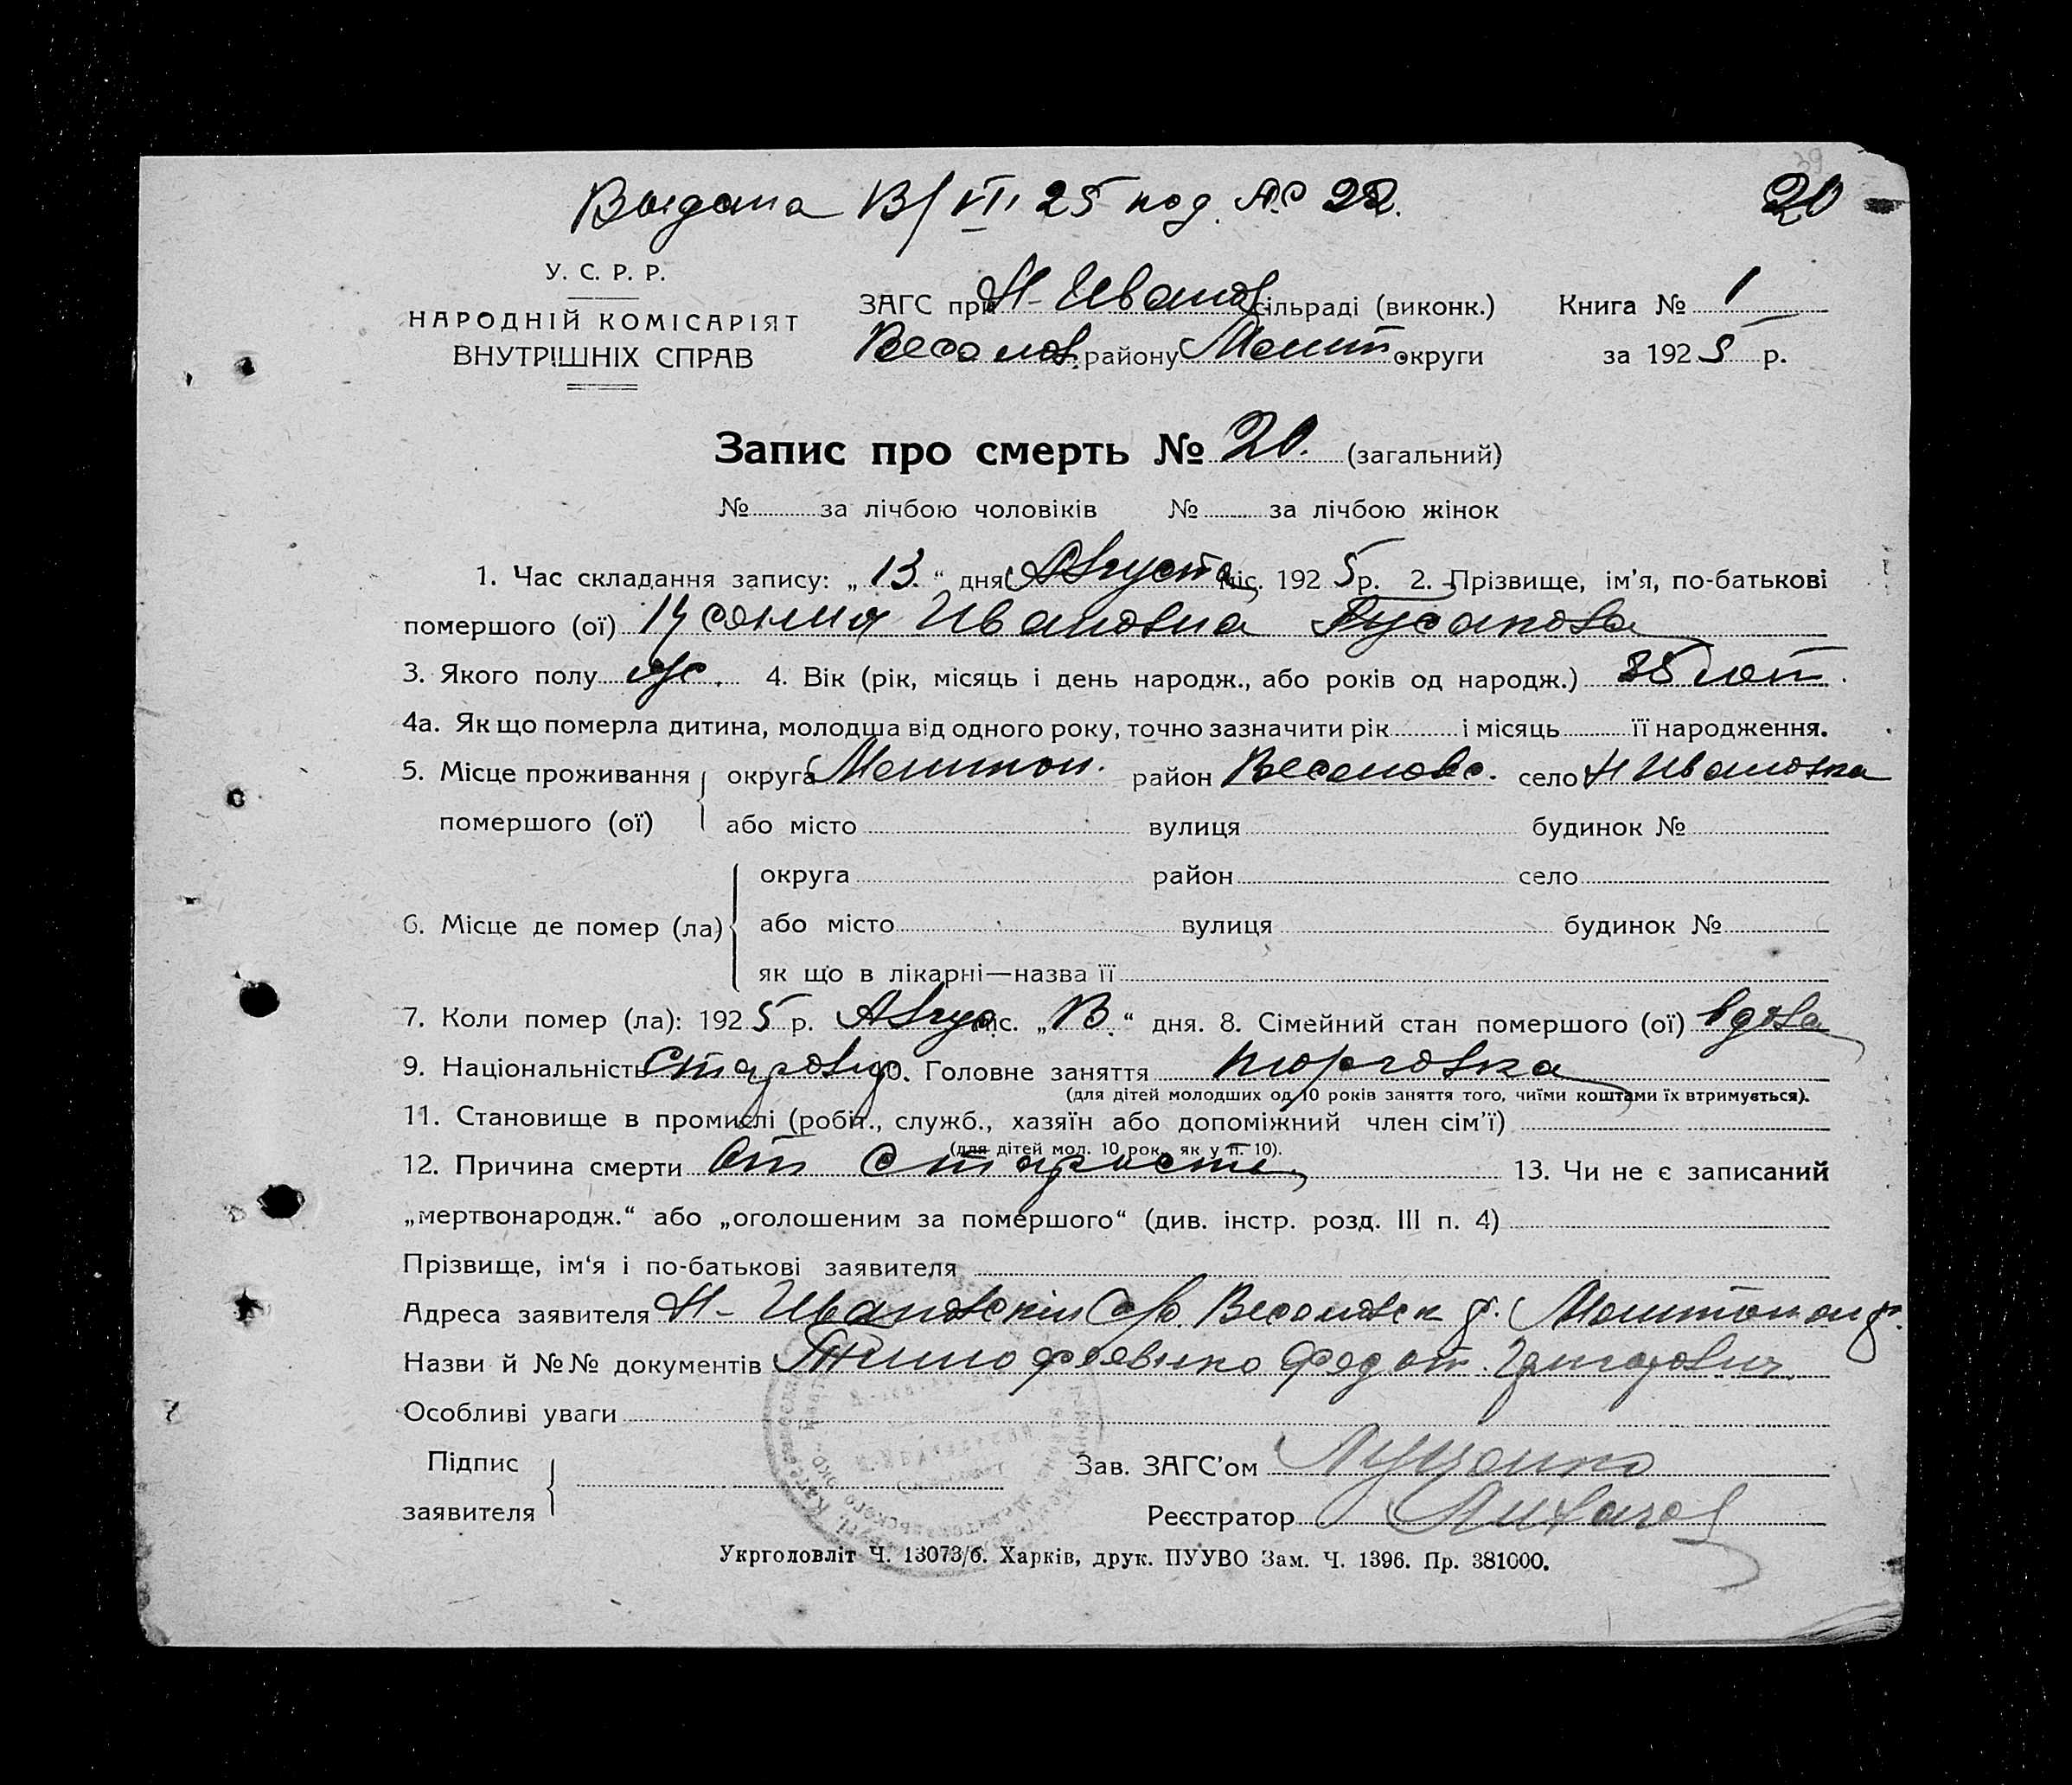 Выдана 13/VII 25 под № 22.
20
У. С. Р. Р.
НАРОДНІЙ КОМІСАРІЯТ
ВНУТРІШНІХ СПРАВ
ЗАГС при Н-Иванов сільраді (виконк.) Книга № 1
Веселов. району Мелит. округи за 1925 р.
Запис про смерть № 20. (загальний)
№ за лічбою чоловіків № за лічбою жінок
1. Час складання запису: „13" дня Августа міс. 1925 р. 2. Прізвище, ім'я, по-батькові
помершого (ої) Ксения Ивановна Русанова
3. Якого полу ж. 4. Вік (рік, місяць і день народж., або років од народж.) 85 лет.
4а. Як що померла дитина, молодша від одного року, точно зазначити рік і місяць її народження.
5. Місце проживання округа Мелитоп. район Веселовс. село Н Ивановка
помершого (ої) або місто вулиця будинок №
округа район село
6. Місце де помер (ла) або місто вулиця будинок №
як що в лікарні—назва її
7. Коли помер (ла): 1925 р. Авгус міс. „13" дня. 8. Сімейний стан помершого (ої) вдова
9. Національність 10. Головне заняття торговка
(для дітей молодших од 10 років заняття того, чиїми коштами їх втримується).
11. Становище в промислі (робіт., служб., хазяїн або допоміжний член сім'ї)
(для дітей мол. 10 рок. як у п. 10).
12. Причина смерти От старости 13. Чи не є записаний
„мертвонародж." або „оголошеним за помершого" (див. інстр. розд. III п. 4)
Прізвище, ім'я і по-батькові заявителя
Адреса заявителя Н-Ивановский С/с. Веселовск р. Мелитоп окр.
Назви й №№ документів Тимофеевко Федот Григорович
Особливі уваги
Підпис
заявителя
Зав. ЗАГС'ом Луценко
Реєстратор Лихачов
Укрголовліт Ч. 13073/б. Харків, друк. ПУУВО Зам. Ч. 1396. Пр. 381000.